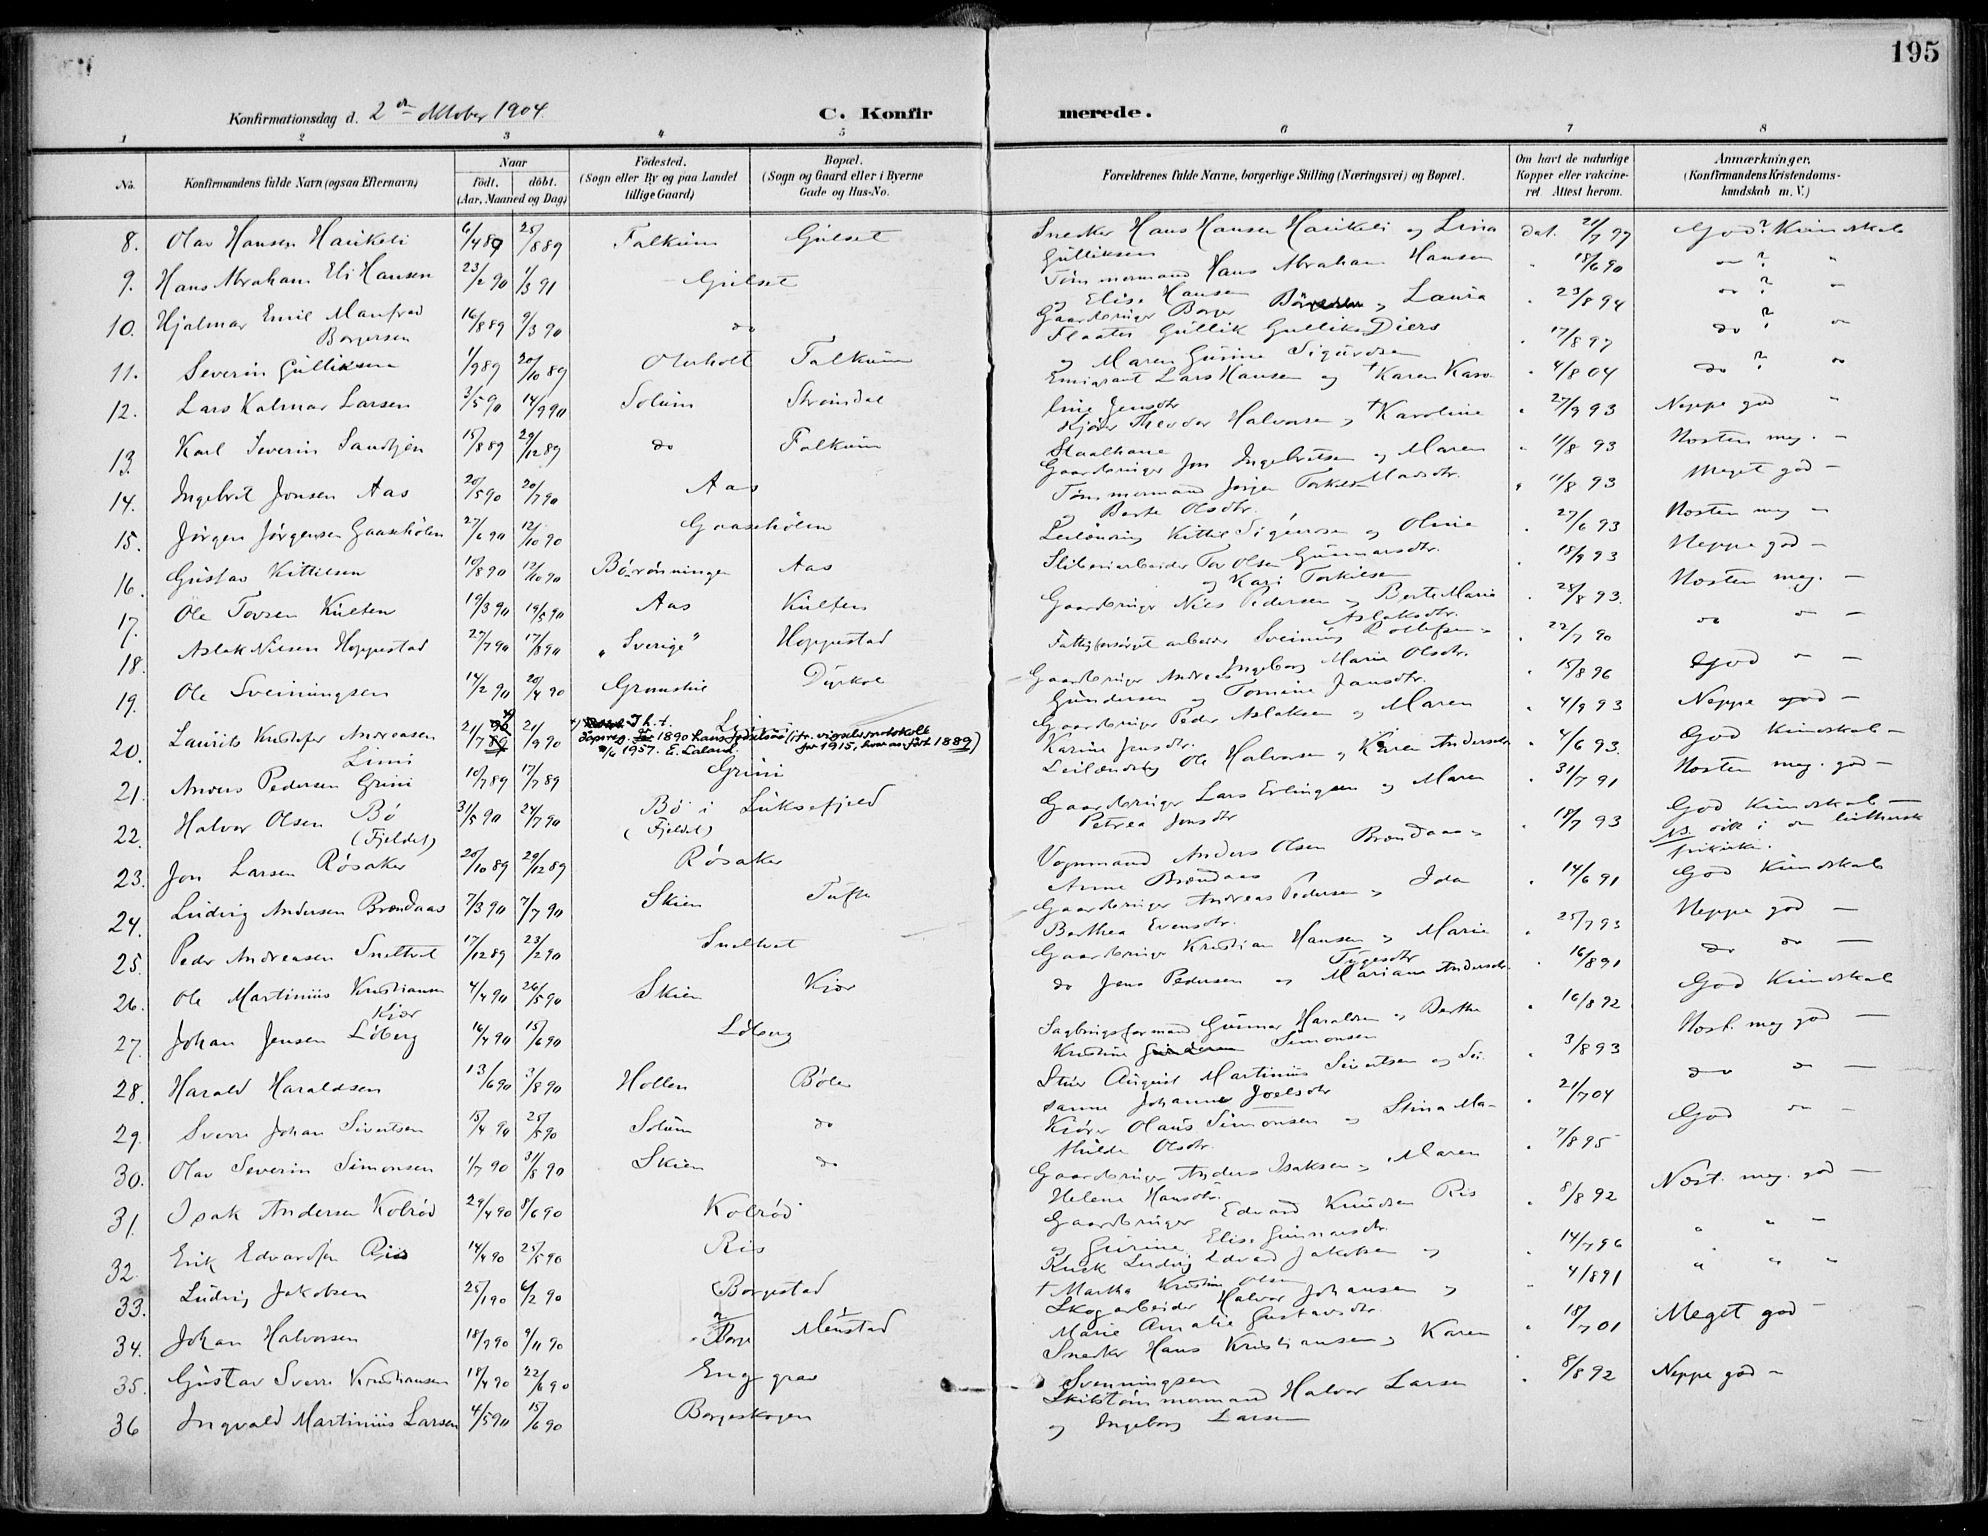 195
Konfirmationsdag d. 2den Oktober 1904.
C. Konfir merede.
1 2 3 4 5 6 7 8
No. Konfirmandens fulde Navn (ogsaa Efternavn)
Naar født, døbt. (Aar, Maaned og Dag)
Fødested. (Sogn eller By og paa Landet tillige Gaard)
Bopæl. (Sogn og Gaard eller i Byerne Gade og Hus-No.
Forældrenes fulde Navne, borgerlige Stilling (Næringsvei) og Bopæl.
Om havt de naturlige Kopper eller vakcineret. Attest herom.
Anmærkninger. (Konfirmandens Kristendomskundskab m. V.)
8. Olav Hansen Haukeli 6/4 89 25/8 89 Falkum Gulset Snedker Hans Hansen Haukeli og Lina Gulliksen dat. 21/7 97 God? Kundskab
9. Hans Abraham Eli Hansen 23/2 90 1/3 91 Gulset Tømmermand Hans Abraham Hansen og Elise Hansen " 18/6 90 do ? "
10. Hjalmar Emil Manfred Borgersen 16/8 89 9/3 90 do Gaardbruger Borger og Laura Diers " 23/8 94 do ? do
11. Severin Gulliksen 1/9 89 20/10 89 Oterholt Falkum Flaater Gullik Gulliksen og Maren Gurine Sigurdsen " 17/8 97 do ? do
12. Lars Kalmar Larsen 3/5 90 14/9 90 Solum Strømdal Emigrant Lars Hansen og † Karen Karoline Jensdtr " 4/8 04 do ? do
13. Karl Severin Sandbjen 15/8 89 29/12 89 do Falkum Kjører Theodor Halvorsen og † Karoline Staalhane " 27/9 93 Neppe god "
14. Ingebret Jonsen Aas 20/5 90 20/7 90 Aas Gaardbruger Jon Ingebretsen og Maren Madsdtr. " 11/8 93 Næsten meg. -
15. Jørgen Jørgensen Gaasehølen 27/6 90 12/10 90 Gaasehølen Tømmermand Jørgen Torkelsen og Berte Olsdtr. " 11/8 93 Meget god -
16. Gustav Kittilsen 10/8 90 12/10 90 Børønningen Aas Leilænding Kittil Sigurdsen og Oline Gunnarsdtr. " 27/6 93 Næsten meg -
17. Ole Tovsen Kulten 19/3 90 19/5 90 Aas Kulten Sliberiarbeider Tov Olsen og Kari Torkilsen " 18/9 93 Neppe god -
18. Aslak Nilsen Hoppestad 27/7 90 17/8 90 " Sverige " Hoppestad Gaardbruger Nils Pedersen og Berte Marie Aslaksdtr. " 28/8 93. Næsten meg. -
19. Ole Sveinungsen 14/2 90 20/4 90 Gromstul Dyrkol Fattigforsørget arbeider Sveinung Rollefsen og Ingeborg Marie Olsdtr. " 22/7 90 do do -
20. Laurits Kristofer Andreasen Limi 21/7 21/9 90 Limi Gaardbruger Andreas Gundersen og Tomine Jansdtr. " 15/8 96 God do -
*) T.h.t. dåpsreg. er 1890 hans fødselsår (jfr. vigselsprotokoll for 1915, hvor anført 1889) 1957. E. Laland.
21. Anders Pedersen Grini 10/7 89 17/7 89 Grini Gaardbruger Peder Aslaksen og Maren Karine Jensdtr. " 4/9 93 Neppe god -
22. Halvor Olsen Bø (Fjeldet) 31/5 90 27/7 90 Bø i Luksefjeld (Fjeldet) Leilænding Ole Halvorsen og Karen Andersdtr " 4/6 93. God Kundskab -
23. Jon Larsen Røsaker 20/10 89 29/12 89 Røsaker Gaardbruger Lars Erlingsen og Maren Petrea Jonsdtr " 31/7 91 Næsten meg. god -
24. Ludvig Andersen Brændaas 7/3 90 7/7 90 Skien Tufte Vognmand Anders Olsen Brændaas og Anne Brændaas " 18/7 93 God Kundskab - NB. i den luthersk frikirke.
25. Peder Andreasen Sneltvet 17/12 89 23/2 90 Sneltvet Gaardbruger Andreas Pedersen og Ida Berthea Evensdtr. " 14/6 91 God Kundskab
26. Ole Martinius Kristiansen Kjær 4/4 90 26/5 90 Skien Kjær Gaardbruger Kristian Hansen og Marie Tygesdtr " 25/7 93 Neppe god -
27. Johan Jensen Løberg 16/4 90 15/6 90 Løberg do Jens Pedersen og Mariane Andersdtr. " 16/8 91 do do -
28. Harald Haraldsen 13/6 90 3/8 90 Hollen Bøle Sagbrugsformand Gunnar Haraldsen og Berthe Kristine Simonsen " 16/8 92 God Kundskab
29. Sverre Johan Sivertsen 15/4 90 25/5 90 Solum do Stuer August Martinius Sivertsen og Susanne Johanne Joelsdtr " 3/8 93 Næst. meg god -
30. Olav Severin Simonsen 1/7 90 31/8 90 Skien do Kjører Olaus Simonsen og Stina Mathilde Olsdtr. " 21/7 04 do do -
31. Isak Andersen Kolrød 29/4 90 8/6 90 Kolrød Gaardbruger Anders Isaksen og Maren Helene Hansdtr. " 7/8 95 God do -
32. Erik Edvardsen Ris 14/4 90 25/5 90 Ris Gaardbruger Edvard Knudsen Ris og Gurine Elise Gunnarsdtr. " 8/8 92 Næst. meg. god -
33. Ludvig Jakobsen 25/1 90 6/2 90 Borgestad Kusk Ludvig Edvard Jakobsen og † Martha Kristine Olsen " 14/7 96 " " -
34. Johan Halvorsen 18/7 90 9/11 90 Borge Menstad Skogarbeider Halvor Johansen og Marie Amalie Gustavsdtr. " 4/8 91 " " "
35. Gustav Sverre Kristiansen 18/4 90 22/6 90 Enggrav Snedker Hans Kristiansen og Karen Svenningsen " 18/7 01 Meget god -
36 Ingvald Martinius Larsen 4/5 90 15/6 90 Borgeskogen Skibstømmermand Halvor Larsen og Ingeborg Larsen " 8/8 92 Neppe god -